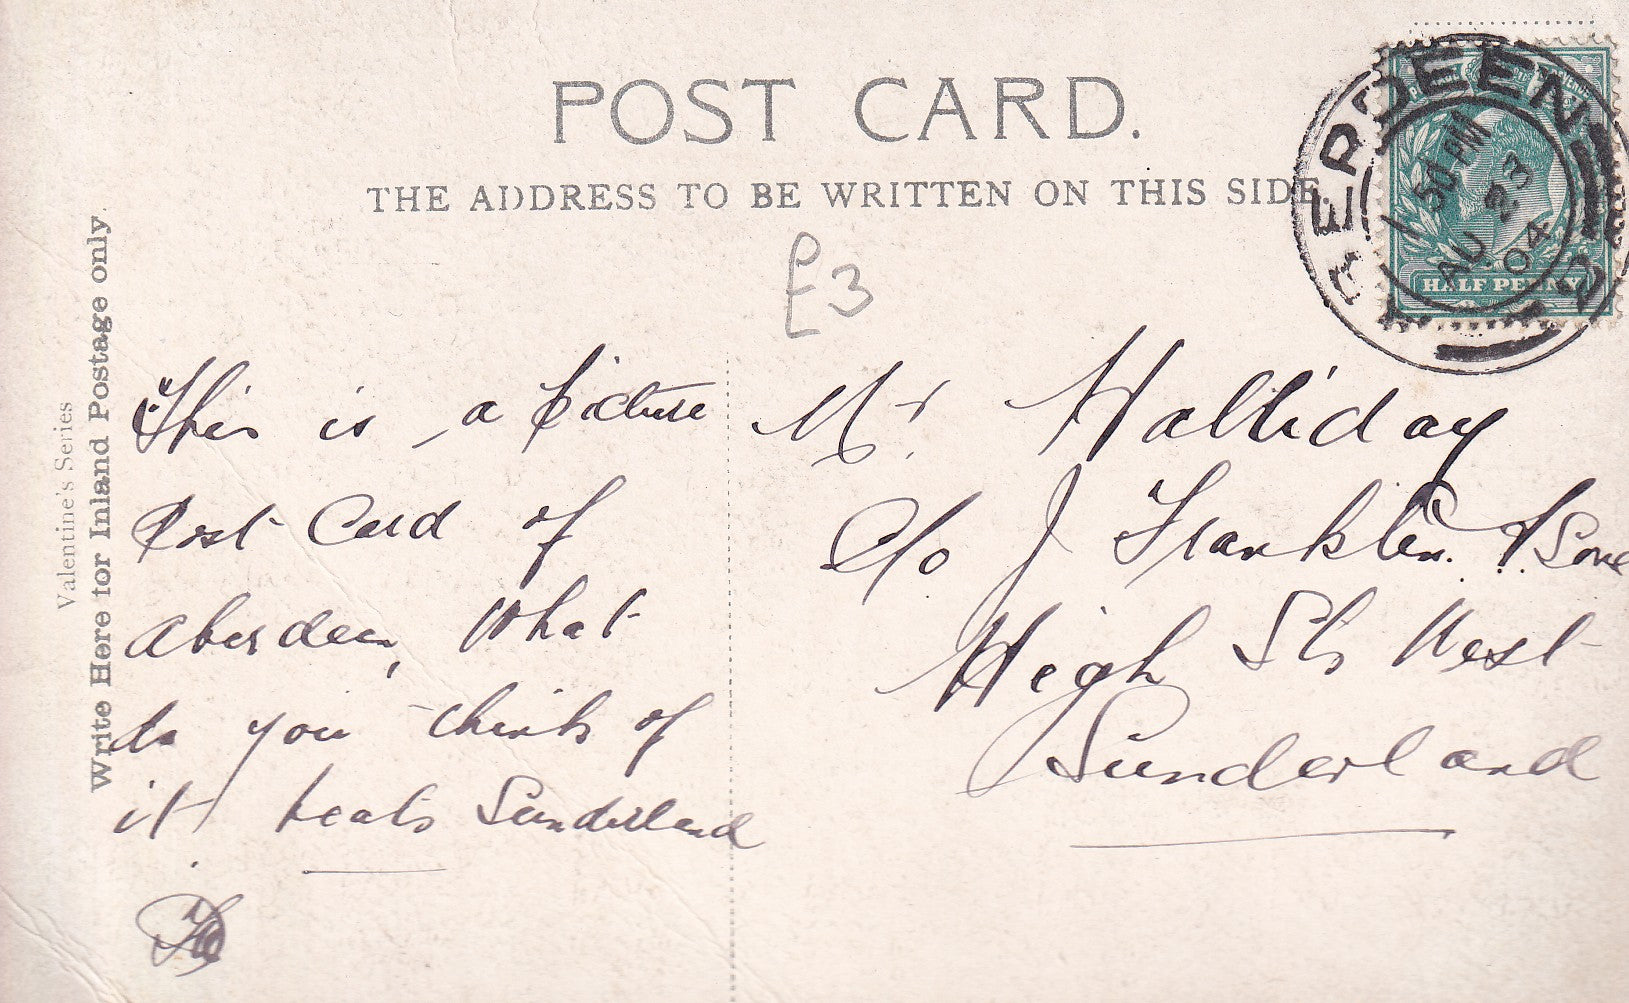 POST CARD.
THE ADDRESS TO BE WRITTEN ON THIS SIDE
ABERDEEN
1 50 PM
AU 23
04
HALF PENNY
£3
Valentine's Series
Write Here for Inland Postage only.
This is a picture
Post Card of
Aberdeen, What
do you think of
it beats Sunderland
Mr Halliday
C/o J Franklin & Sons
High St West
Sunderland